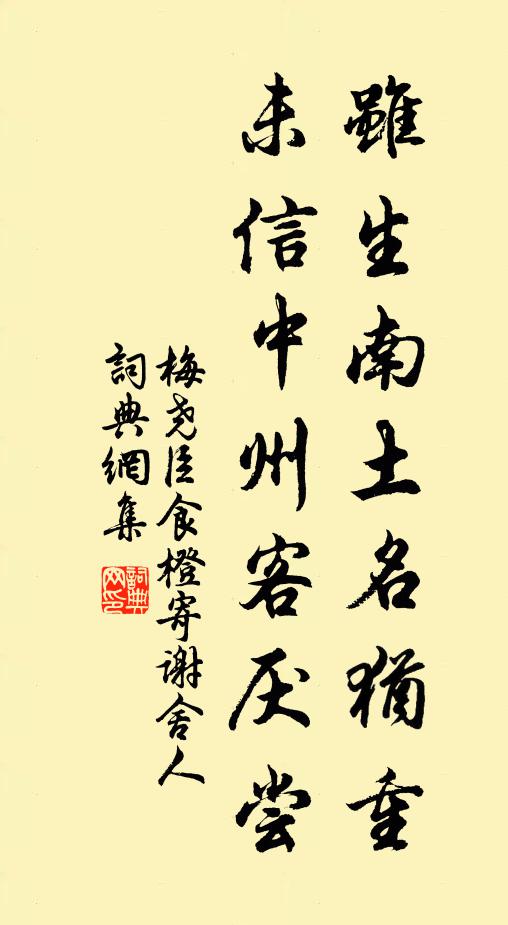 雖生南土名猶重
未信中州客厌尝
梅尧臣食橙寄谢舍人
詞典網集
詞典網印